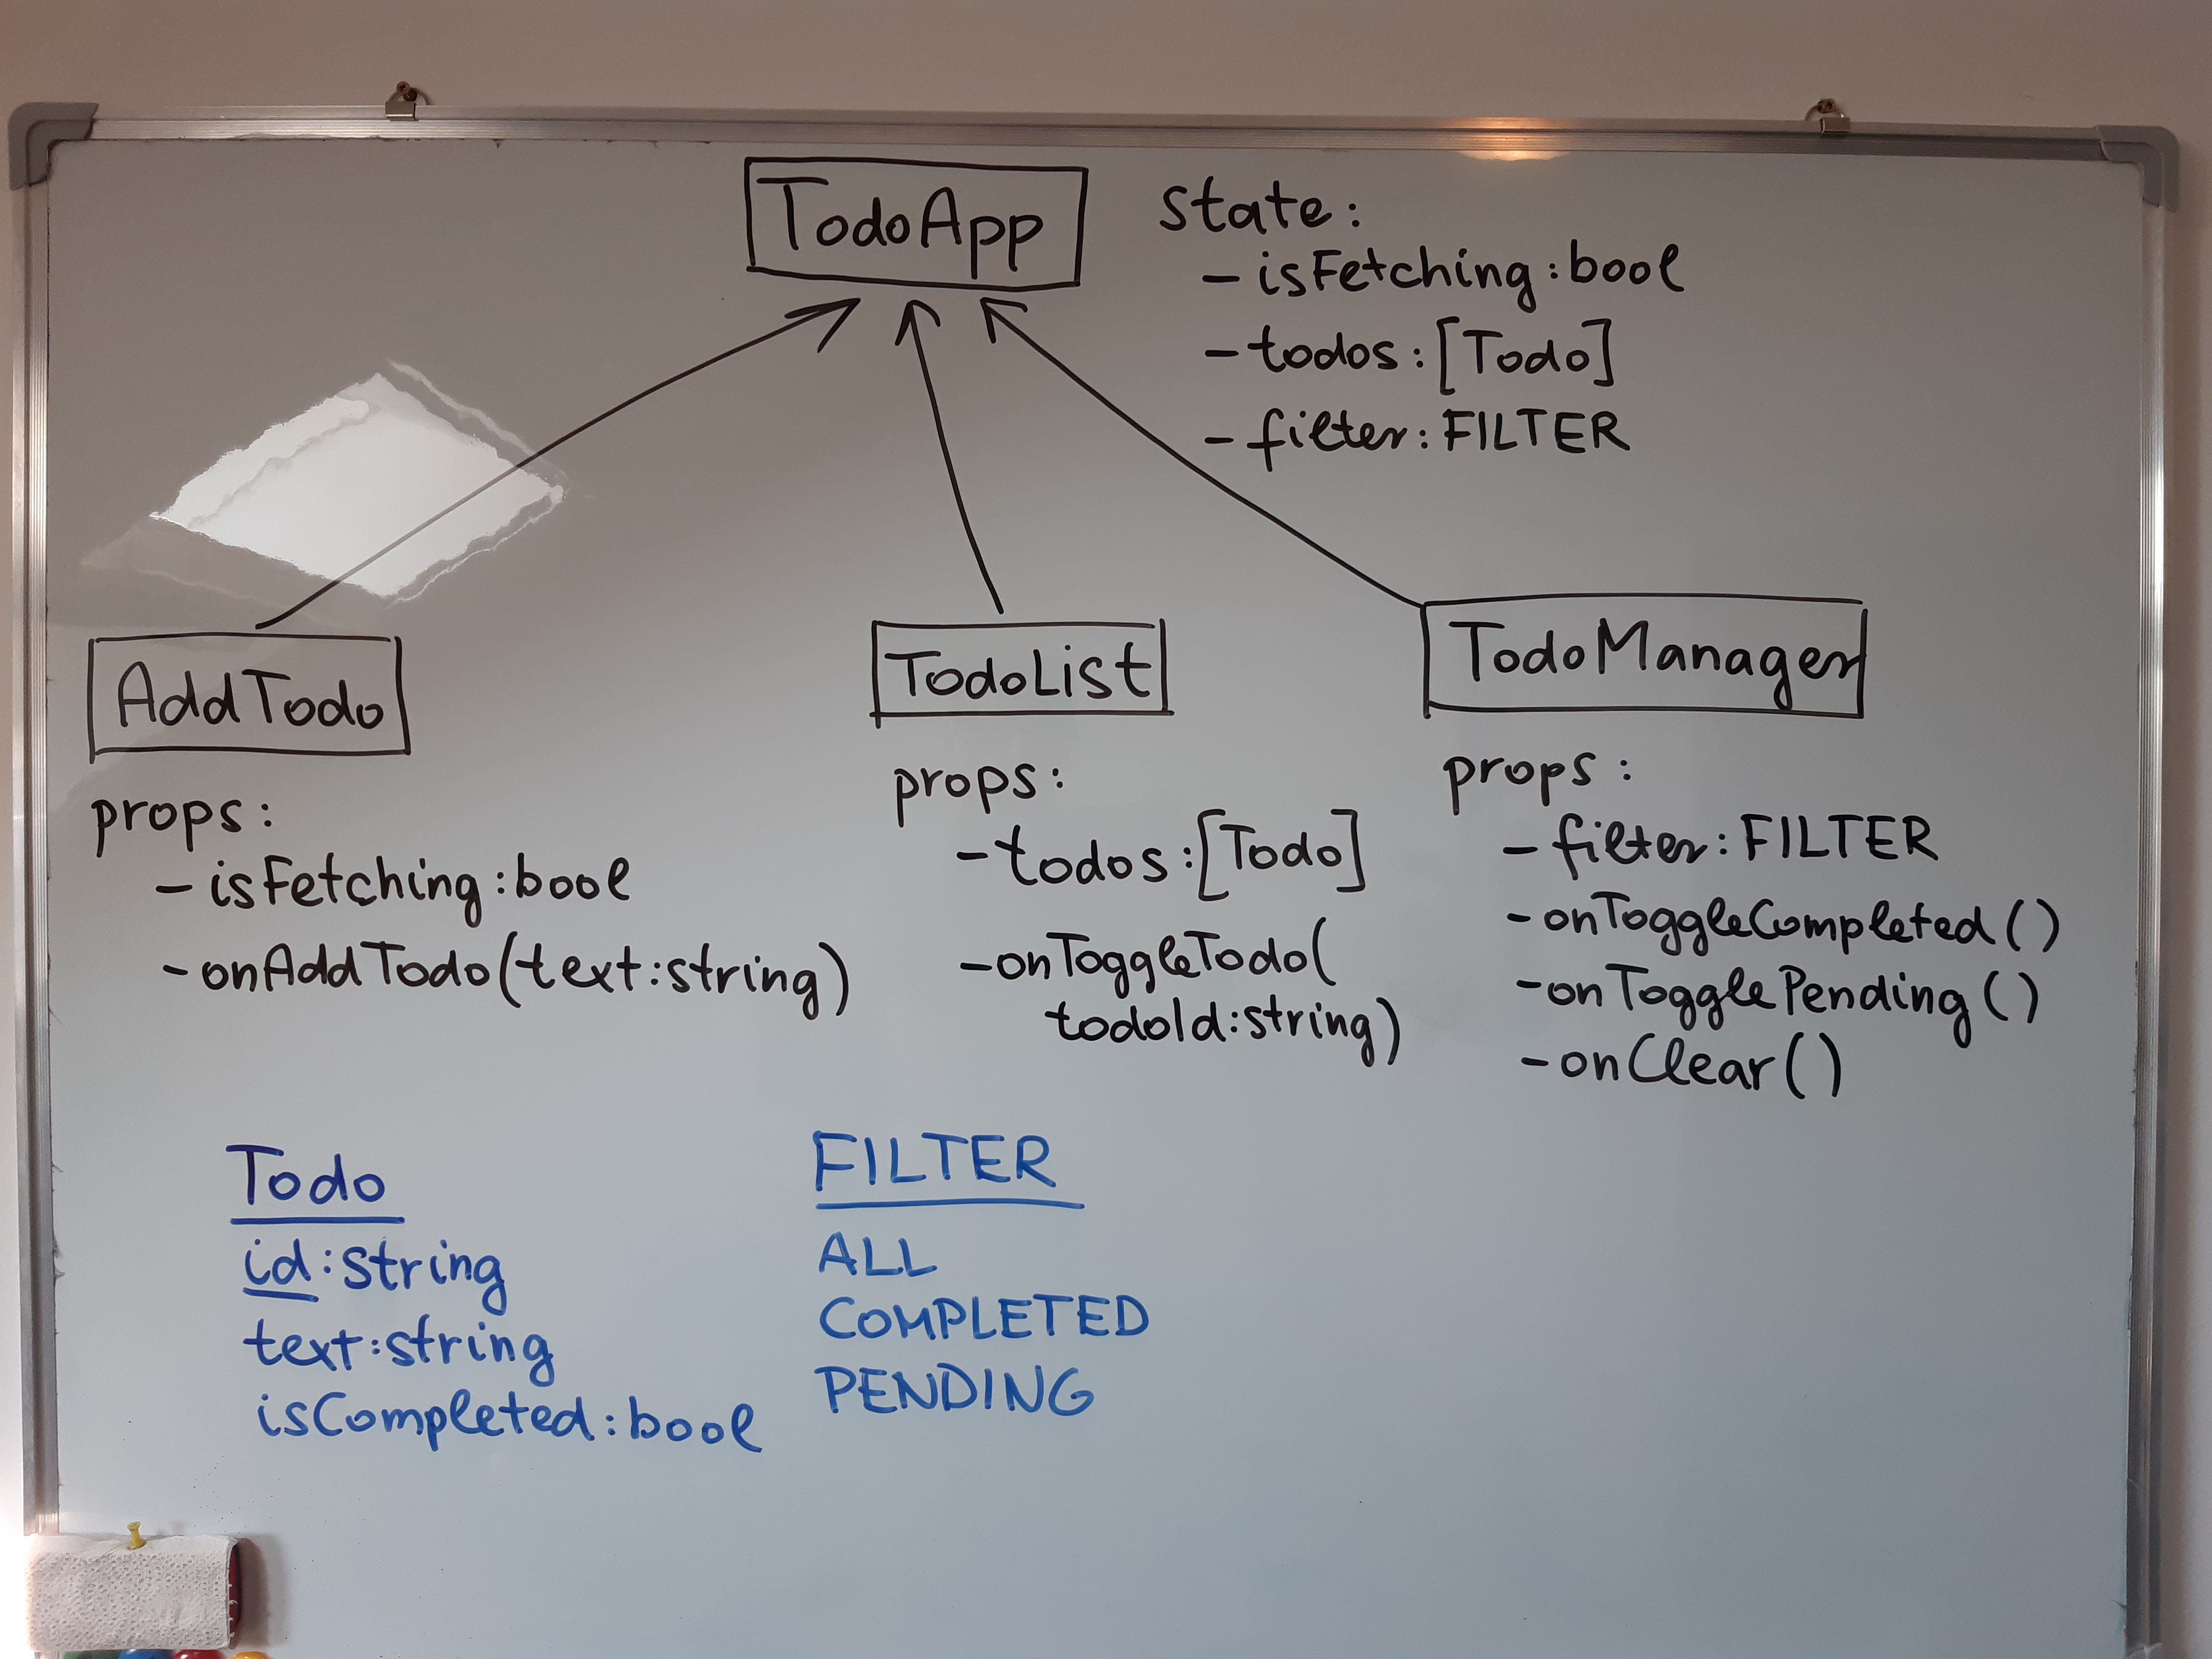 TodoApp
state:
- isFetching:bool
- todos:[Todo]
- filter:FILTER
AddTodo
props:
- isFetching:bool
- onAddTodo(text:string)
TodoList
props:
- todos:[Todo]
- onToggleTodo(
todoId:string)
TodoManager
props:
- filter:FILTER
- onToggleCompleted()
- onTogglePending()
- onClear()
Todo
id:string
text:string
isCompleted:bool
FILTER
ALL
COMPLETED
PENDING